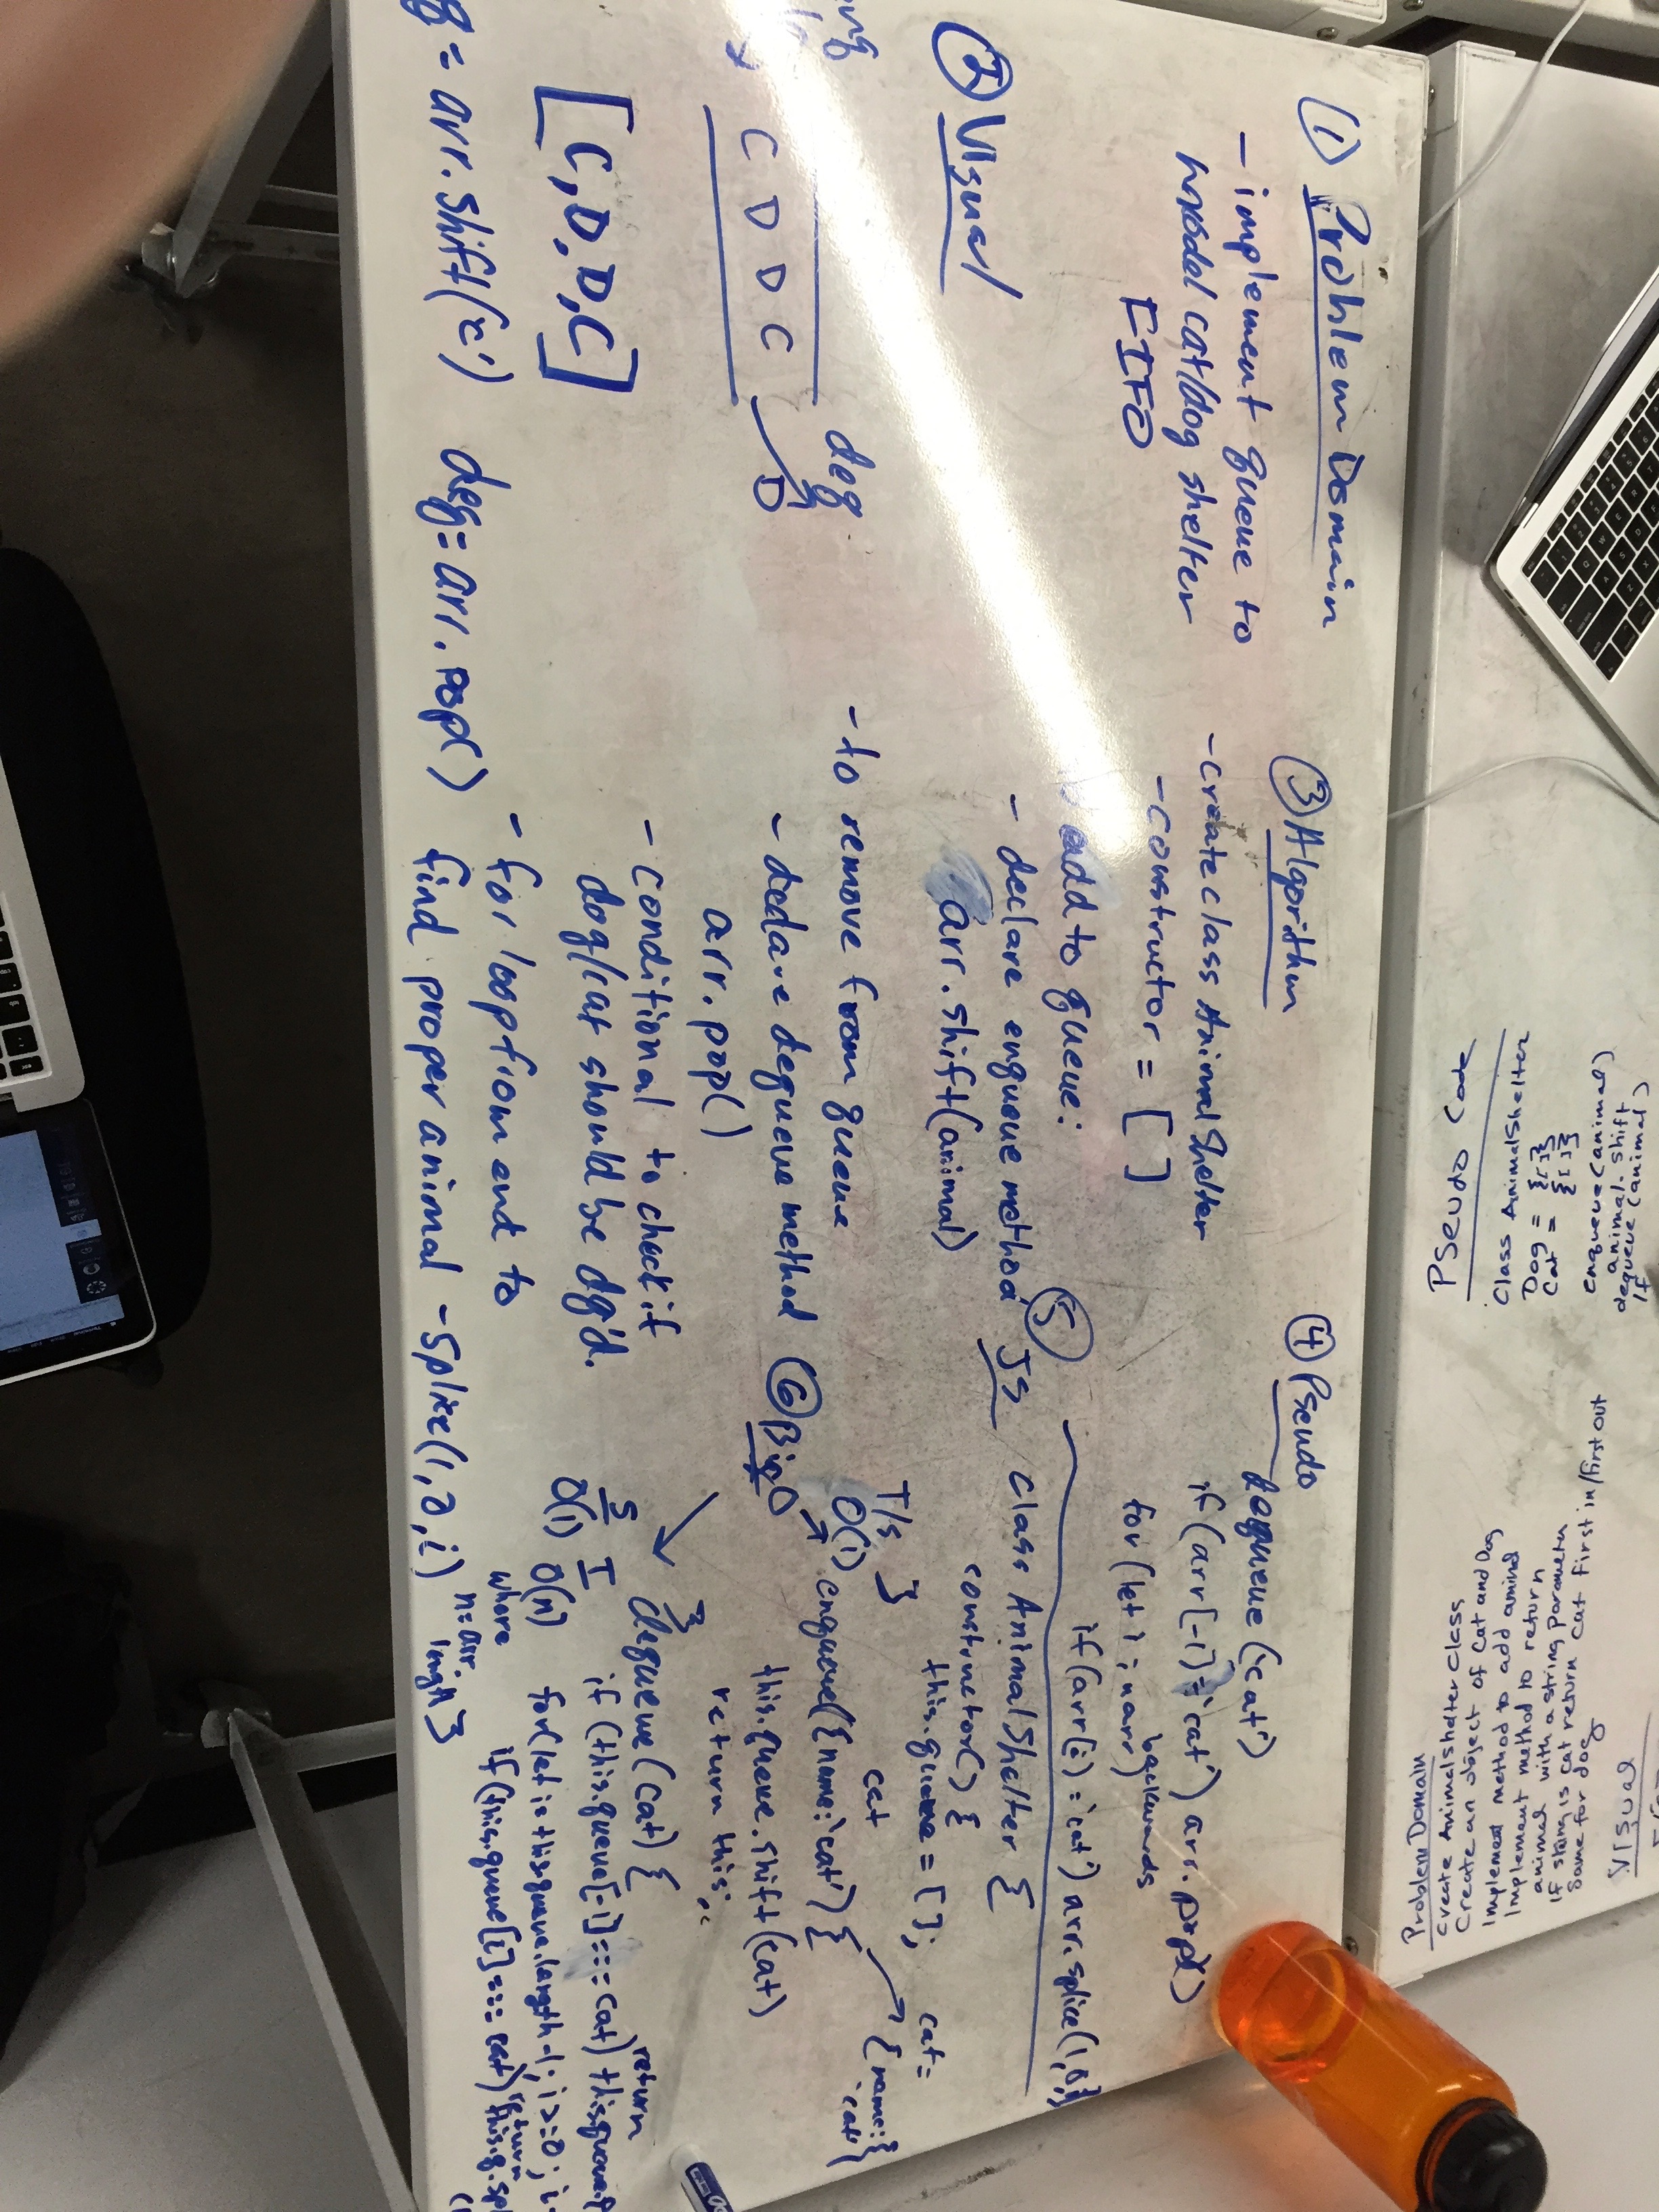 ① Problem Domain
- implement queue to
model cat/dog shelter
FIFO
② Visual
C D D C
deq
D
[C, D, D, C]
= arr.shift('c') deq = arr.pop()
③ Algorithm
- create class AnimalShelter
- constructor = [ ]
add to queue:
- declare enqueue method
arr.shift(animal)
- to remove from queue
- declare dequeue method
arr.pop()
- conditional to check if
dog/cat should be dq'd.
- for loop from end to
find proper animal - splice(1, 0, i)
④ Pseudo
dequeue('cat')
if (arr[-1] = 'cat') arr.pop()
for (let i : narr)
backwards
if (arr[i] = 'cat') arr.splice(1,0,i)
⑤ JS
class AnimalShelter {
constructor() {
this.queue = [ ];
}
cat
cat =
{name:
'cat'}
enqueue({name: 'cat'}) {
this.queue.shift(cat)
return this;
}
dequeue(cat) {
return
if (this.queue[-1] === cat) this.queue.p
for (let i = this.queue.length -1; i >= 0; i-
if (this.queue[i] === cat) return this.q.spl
}
⑥ Big O
T/S
O(1)
S T
O(1) O(n)
where
n = arr.
length
Pseudo Code
Class AnimalShelter
Dog = {[]}
Cat = {[]}
enqueue(animal)
animal.shift
dequeue(animal)
if
Problem Domain
Create AnimalShelter Class
Create an object of Cat and Dog
Implement method to add animal
Implement method to return
animal with a string parameter
If string is cat return cat first in/first out
Same for dog
Visual